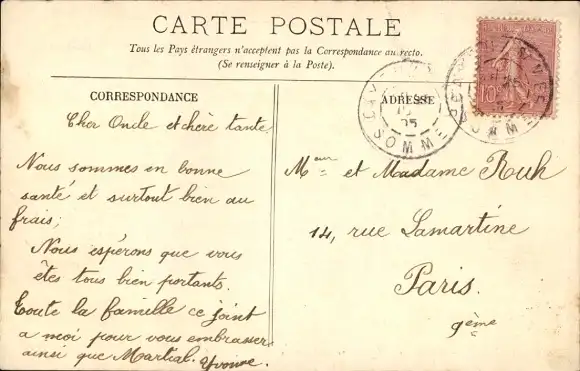 CARTE POSTALE
Tous les Pays étrangers n'acceptent pas la Correspondance au recto.
(Se renseigner à la Poste).
CORRESPONDANCE
Cher Oncle et chère tante
Nous sommes en bonne
santé et surtout bien au
frais;
Nous espérons que vous
êtes tous bien portants.
Toute la famille ce joint
a moi pour vous embrasser
ainsi que Martial. Yvonne.
ADRESSE
Mr et Madame Ruh
14, rue Lamartine
Paris.
9ème
SOMME
10c
SOMME